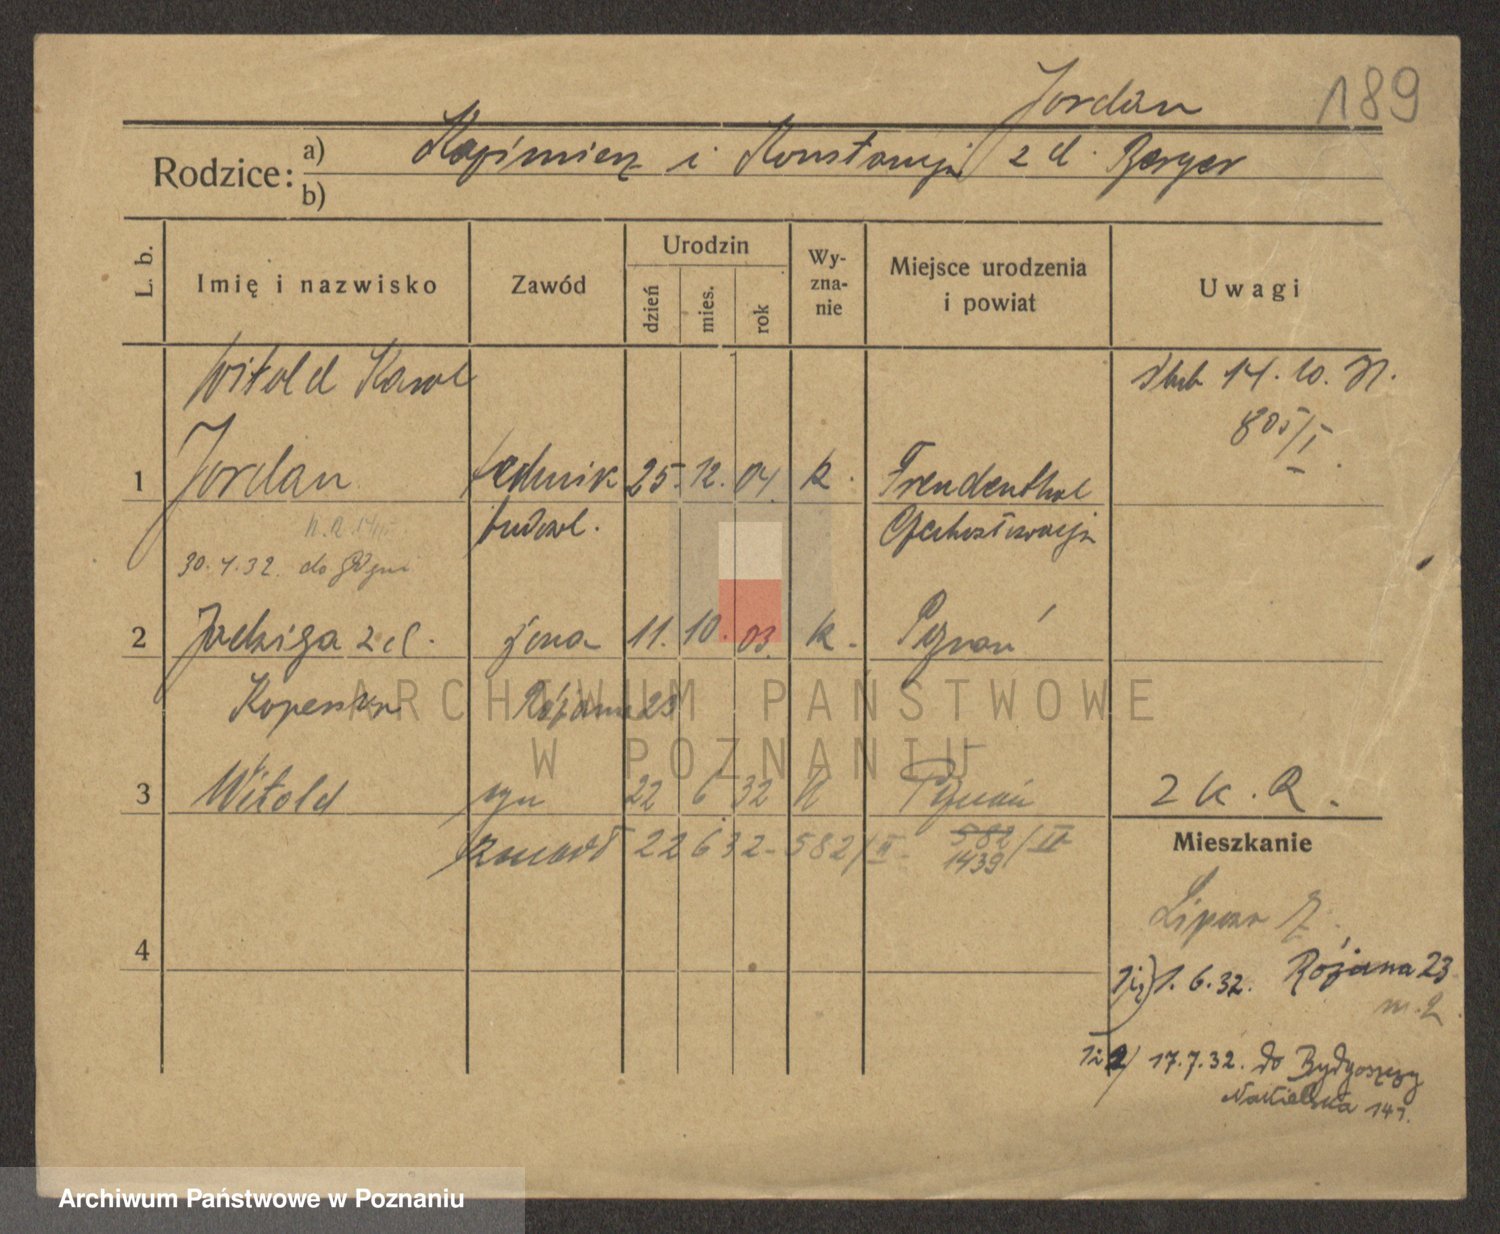 189
Jordan
Rodzice: a) Kazimierz i Konstancja z d. Berger
b)
L. b. Imię i nazwisko Zawód Urodzin dzień mies. rok Wy-zna-nie Miejsce urodzenia i powiat Uwagi
Witold Karol ślub 14. 10. 31.
805/I.
1 Jordan technik 25. 12. 04. k. Freudenthal
budowl. Czechosłowacja
30. 4. 32. do Gdyni
2 Jadwiga z d. żona 11. 10. 03. k. Poznań
Różana 23
3 Witold syn 22 6 32 k Poznań 2 k. R.
zmarł 22 6 32 - 582/II - 582
1439/II
Mieszkanie
4
1 i 2) 1. 6. 32. Różana 23
m. 2.
1 i 2/ 17. 7. 32. do Bydgoszczy
Nakielska 141.
ARCHIWUM PAŃSTWOWE
W POZNANIU
Archiwum Państwowe w Poznaniu